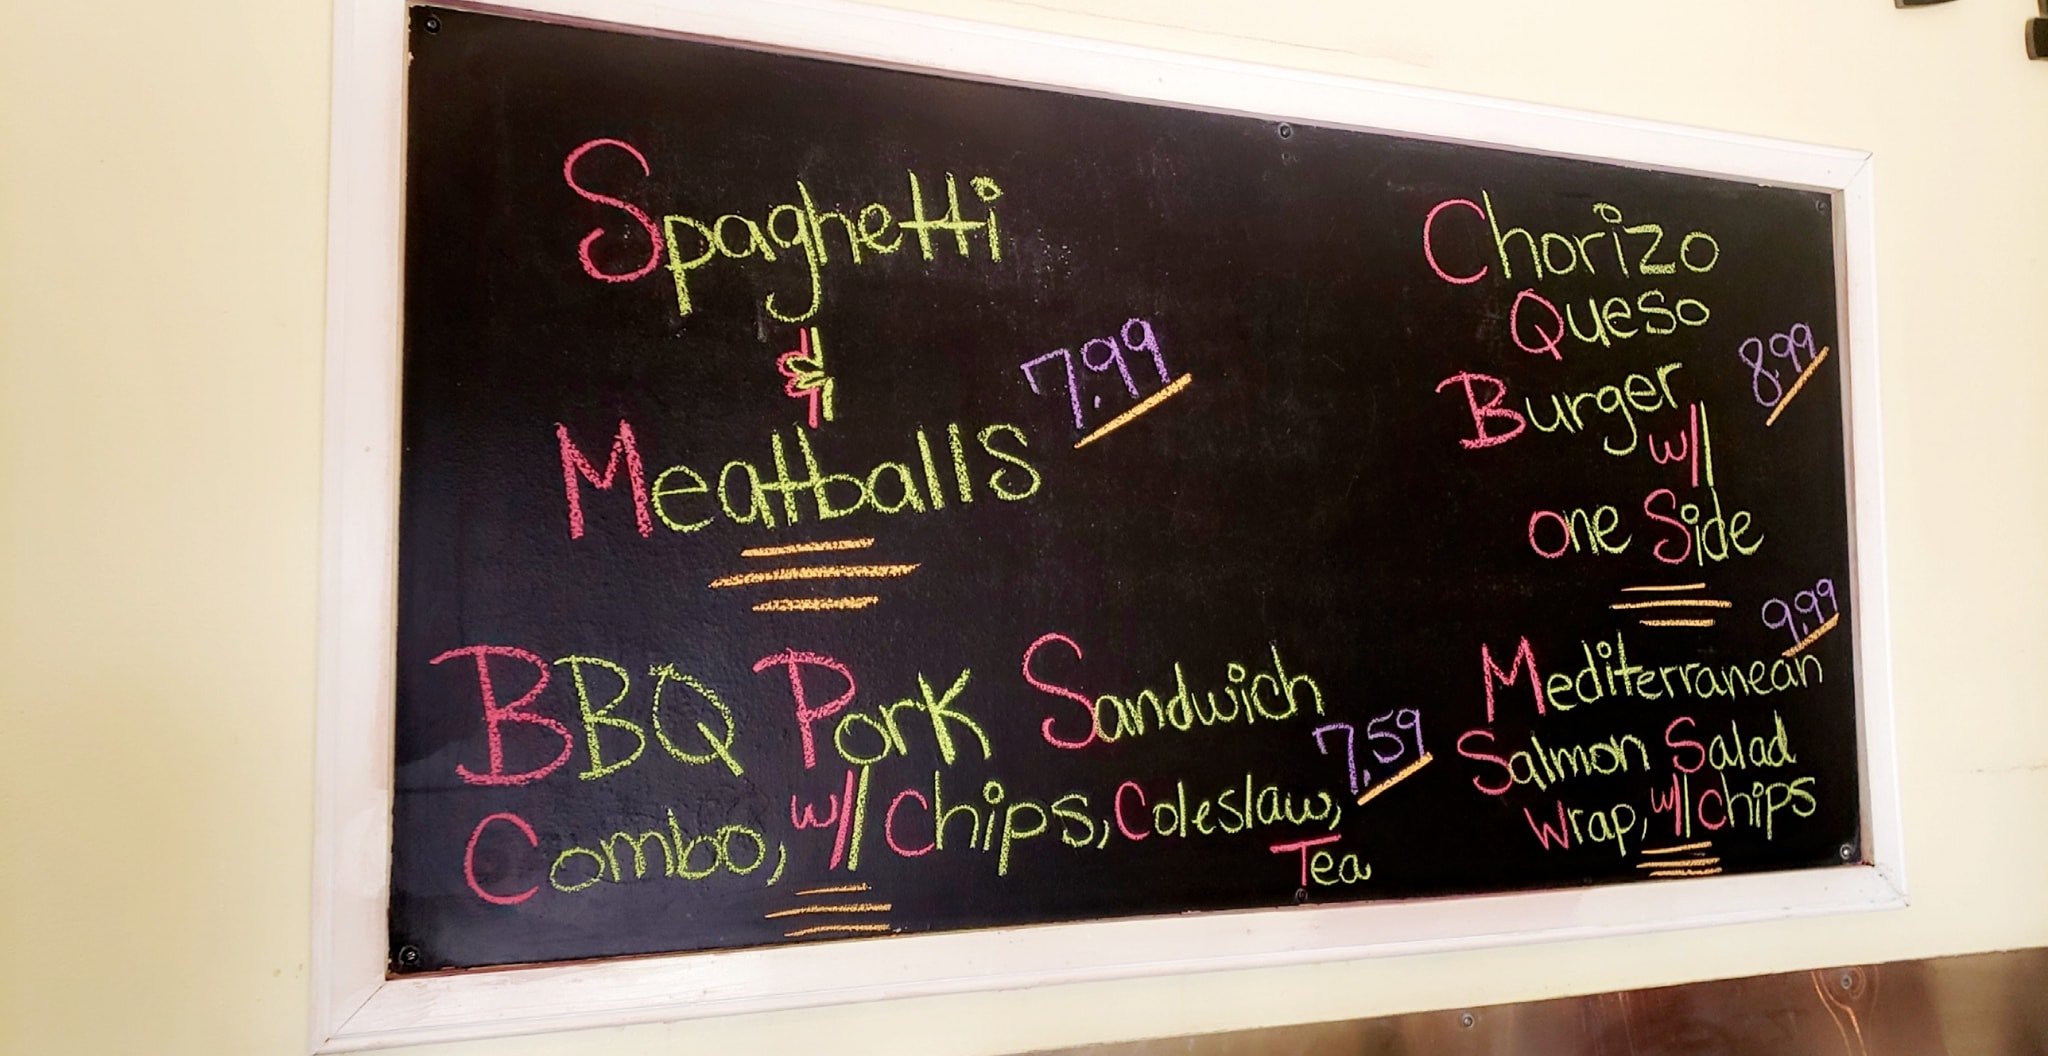 Spaghetti
&
Meatballs
7.99
Chorizo
Queso
Burger
w/
One Side
8.99
BBQ Pork Sandwich
Combo, w/ Chips, Coleslaw,
Tea
7.59
Mediterranean
Salmon Salad
Wrap, w/ Chips
9.99